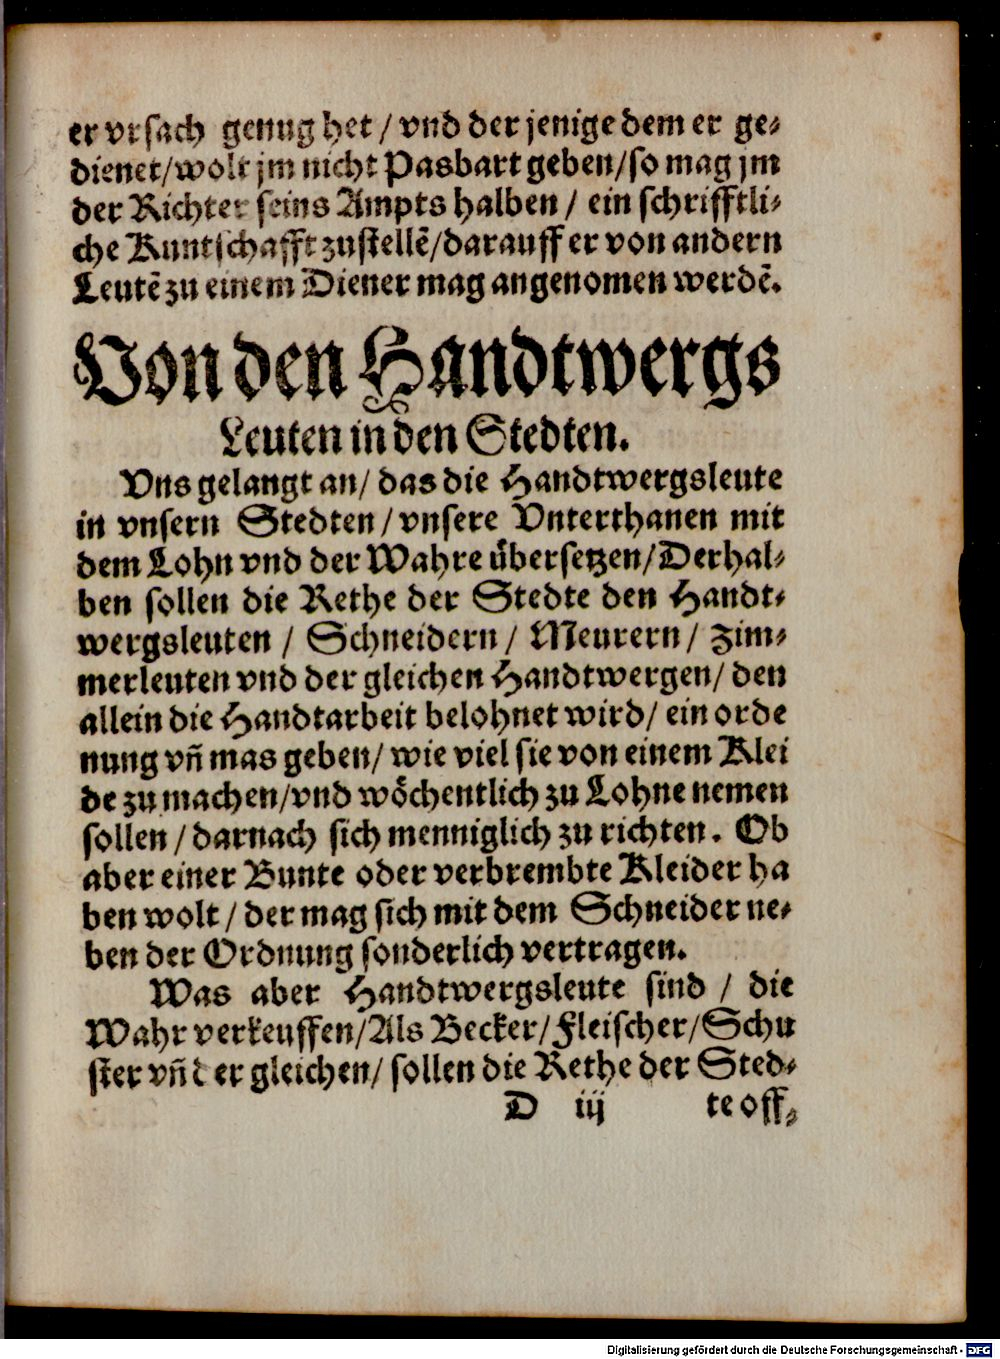 er vrsach genug het / vnd der jenige dem er ge⸗
dienet/wolt jm nicht Pasbart geben/so mag jm
der Richter seins Ampts halben / ein schrifftli⸗
che Kuntschafft zustellẽ/darauff er von andern
Leutẽ zu einem Diener mag angenomen werdẽ.
Von den Handtwergs
Leuten in den Stedten.
Vns gelangt an/ das die Handtwergsleute
in vnsern Stedten/vnsere Vnterthanen mit
dem Lohn vnd der Wahre übersetzen/Derhal⸗
ben sollen die Rethe der Stedte den Handt⸗
wergsleuten / Schneidern / Meurern / Zim⸗
merleuten vnd der gleichen Handtwergen/ den
allein die Handtarbeit belohnet wird/ ein orde
nung vñ mas geben/ wie viel sie von einem Klei
de zu machen/vnd wöchentlich zu Lohne nemen
sollen / darnach sich menniglich zu richten. Ob
aber einer Bunte oder verbrembte Kleider ha
ben wolt / der mag sich mit dem Schneider ne⸗
ben der Ordnung sonderlich vertragen.
Was aber Handtwergsleute sind / die
Wahr verkeuffen/Als Becker/Fleischer/Schu
ster vñ der gleichen/ sollen die Rethe der Sted⸗
D iij te off⸗
Digitalisierung gefördert durch die Deutsche Forschungsgemeinschaft - DFG